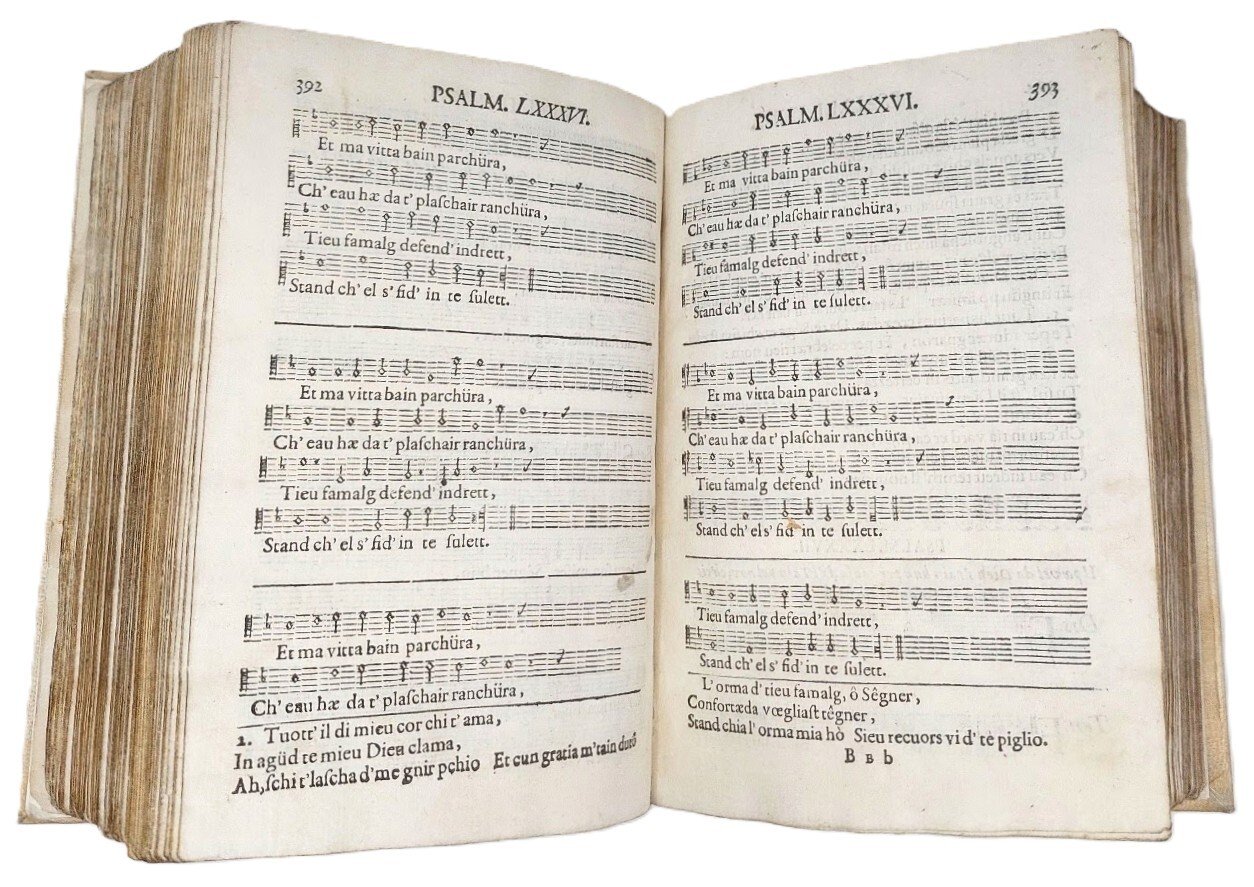 392
PSALM. LXXXVI.
Et ma vitta bain parchüra,
Ch' eau hæ da t' plaſchair ranchüra,
Tieu famalg defend' indrett,
Stand ch' el s' fid' in te ſulett.
Et ma vitta bain parchüra,
Ch' eau hæ da t' plaſchair ranchüra,
Tieu famalg defend' indrett,
Stand ch' el s' fid' in te ſulett.
Et ma vitta bain parchüra,
Ch' eau hæ da t' plaſchair ranchüra,
2. Tuott' il di mieu cor chi t' ama,
In agüd te mieu Dieu clama,
Ah, ſchi t' laſcha d' me gnir pchio Et cun gratia m' tain
PSALM. LXXXVI.
393
Et ma vitta bain parchüra,
Ch' eau hæ da t' plaſchair ranchüra,
Tieu famalg defend' indrett,
Stand ch' el s' fid' in te ſulett.
Et ma vitta bain parchüra,
Ch' eau hæ da t' plaſchair ranchüra,
Tieu famalg defend' indrett,
Stand ch' el s' fid' in te ſulett.
Tieu famalg defend' indrett,
Stand ch' el s' fid' in te ſulett.
L' orma d' tieu famalg, ô Sêgner,
Confortæda vœgliaſt têgner,
Stand chia l' orma mia hò Sieu recuors vi d' tè piglio.
B B b